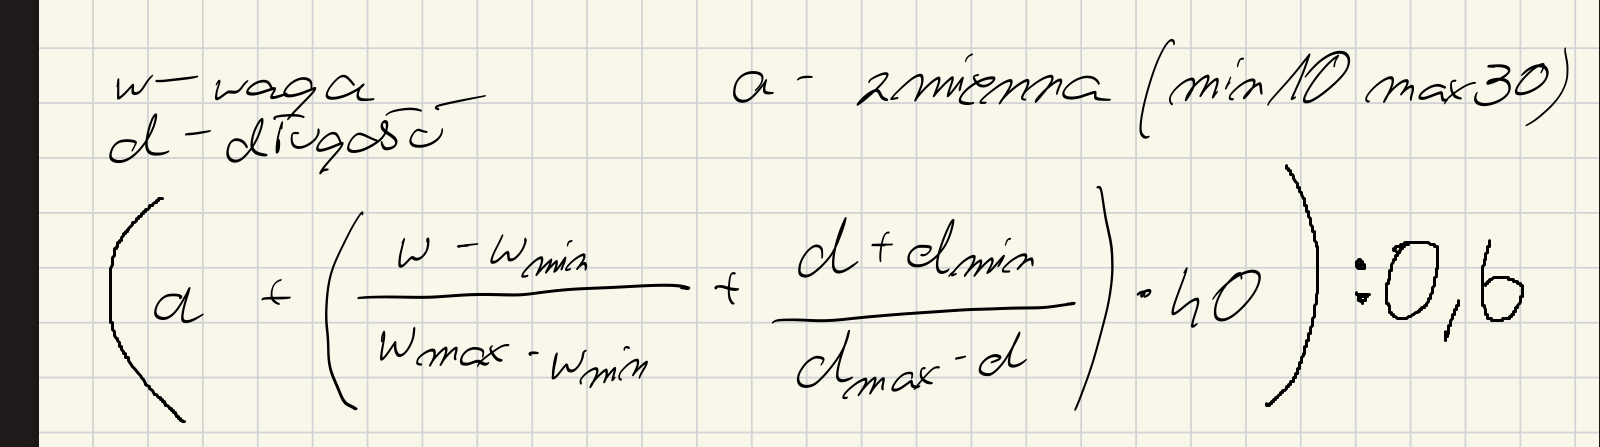 w - waga
d - długość
a - zmienna (min 10 max 30)
(a + (w - w_min / w_max - w_min + d + d_min / d_max - d) · 40) : 0,6